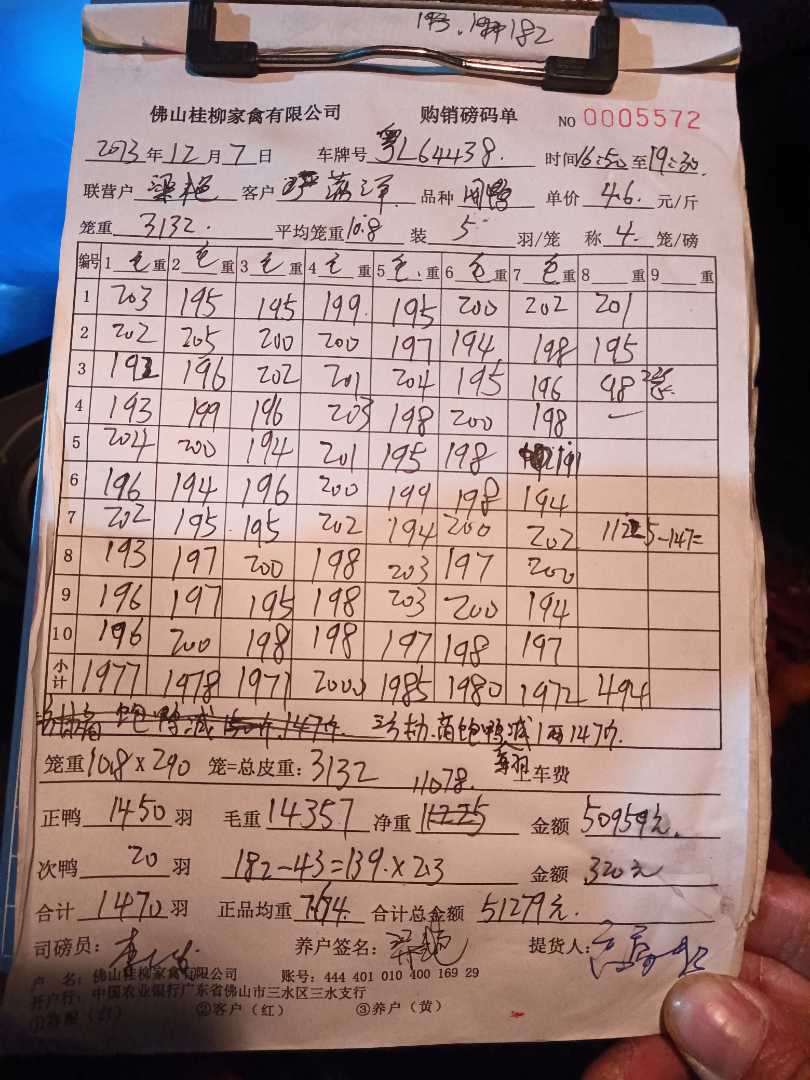 193. 182
佛山桂柳家禽有限公司 购销磅码单 NO 0005572
2023年12月7日 车牌号粤L64438. 时间16:50至19:30.
联营户梁艳 客户 品种 单价4.6元/斤
笼重3132. 平均笼重10.8 装5羽/笼 称4.笼/磅
编号 1毛重 2毛重 3毛重 4毛重 5毛重 6毛重 7毛重 8 重 9 重
1 203 195 195 199. 195 200 202 201
2 202 205 200 200 197 194 198 195
3 192 196 202 201 204 195 196 98
4 193 199 196 203 198 200 198 —
5 204 200 194 201 195 198 191
6 196 194 196 200 199 198 194
7 202 195 195 202 194 200 202 11225-147=
8 193 197 200 198 203 197 200
9 196 197 195 198 203 200 194
10 196 200 198 198 197 198 197
小计 1977 1978 1971 2000 1985 1980 1972 494
饱鸭减 147斤. 饱鸭减1两147斤.
笼重10.8×290 笼=总皮重:3132 每羽上车费
11078.
正鸭1450羽 毛重14357 净重11225 金额50959元.
次鸭20羽 182-43=139.×2.3 金额320元
合计1470羽 正品均重7.74. 合计总金额51279元.
司磅员: 养户签名:梁艳 提货人:
户 名:佛山桂柳家禽有限公司 账号:444 401 010 400 169 29
开户行:中国农业银行广东省佛山市三水区三水支行
②客户(红) ③养户(黄)